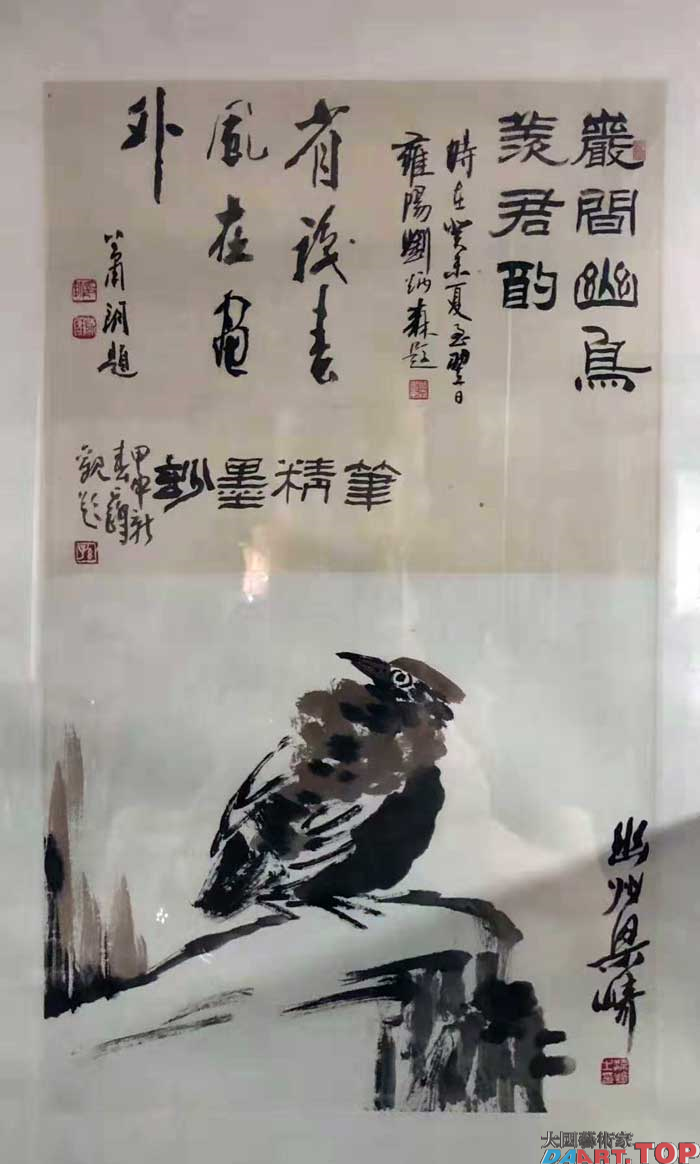 巖間幽鳥
羨君酌
時在癸未夏至翌日
雍陽劉炳森題
有襟春
風在畫
外
蕭潤題
筆精墨妙
甲申新
春
觀題
幽州梁崎
大國藝術家
DAART.TOP